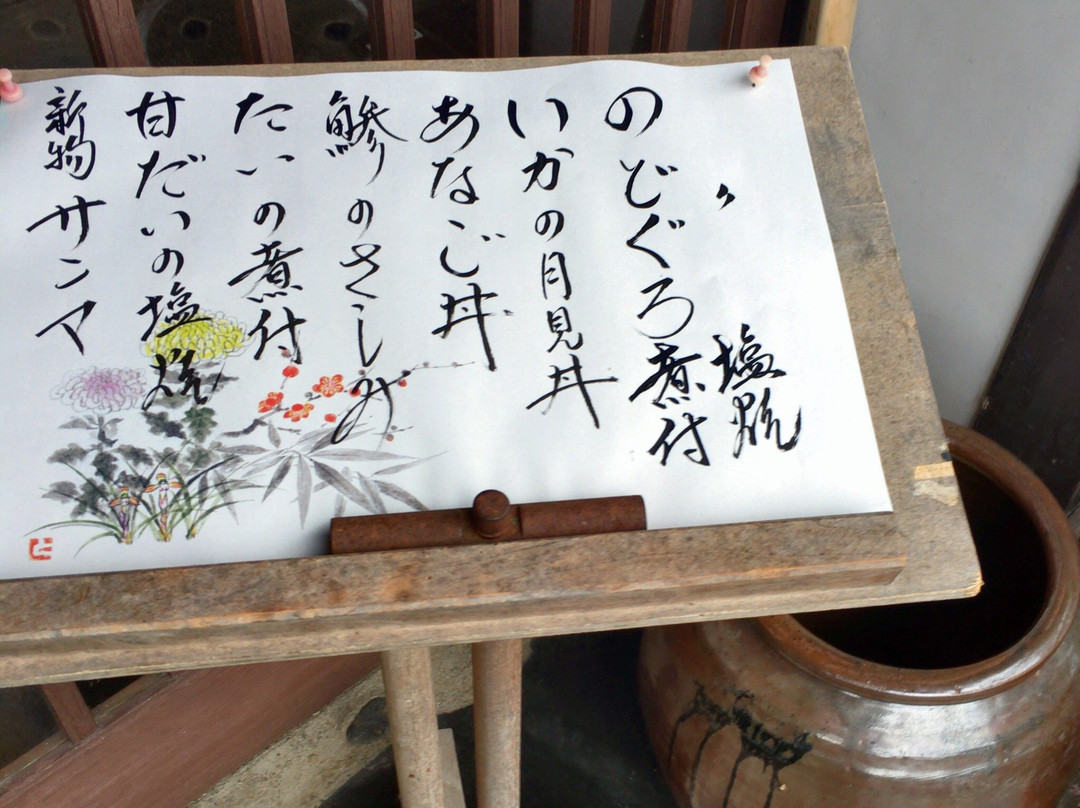 〃 塩焼
のどぐろ煮付
いかの月見丼
あなご丼
鯵のさしみ
たいの煮付
甘だいの塩焼
新物 サンマ